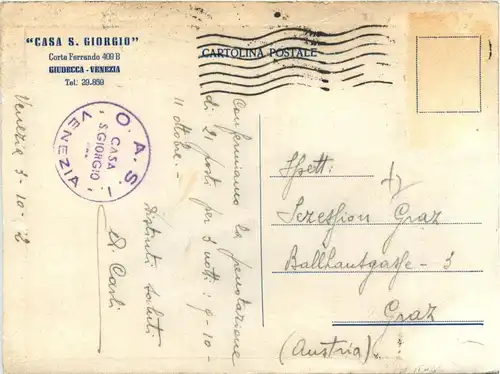 "CASA S. GIORGIO"
Corte Ferrando 409 B
GIUDECCA - VENEZIA
Tel. 29.859
CARTOLINA POSTALE
O. A. S. I.
CASA
S. GIORGIO
VENEZIA
Venezia 3-10-
Confermiamo la prenotazione
di 21 posti per 3 notti: 9-10-
11 ottobre.-
Distinti saluti
D. Carli
Spett:
Sezession Graz
Ballhausgasse - 3
Graz
(Austria).